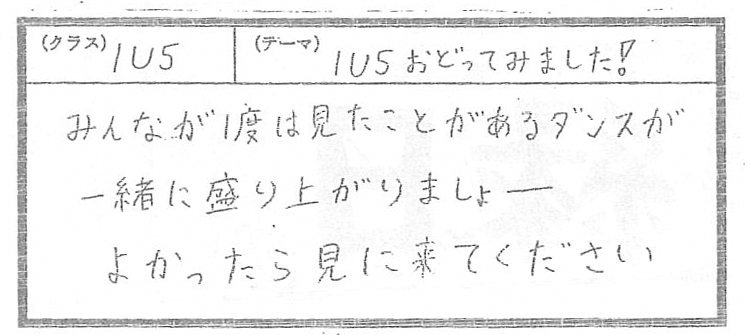 (クラス) 1U5 (テーマ) 1U5おどってみました!
みんなが1度は見たことがあるダンスが
一緒に盛り上がりましょー
よかったら見に来てください